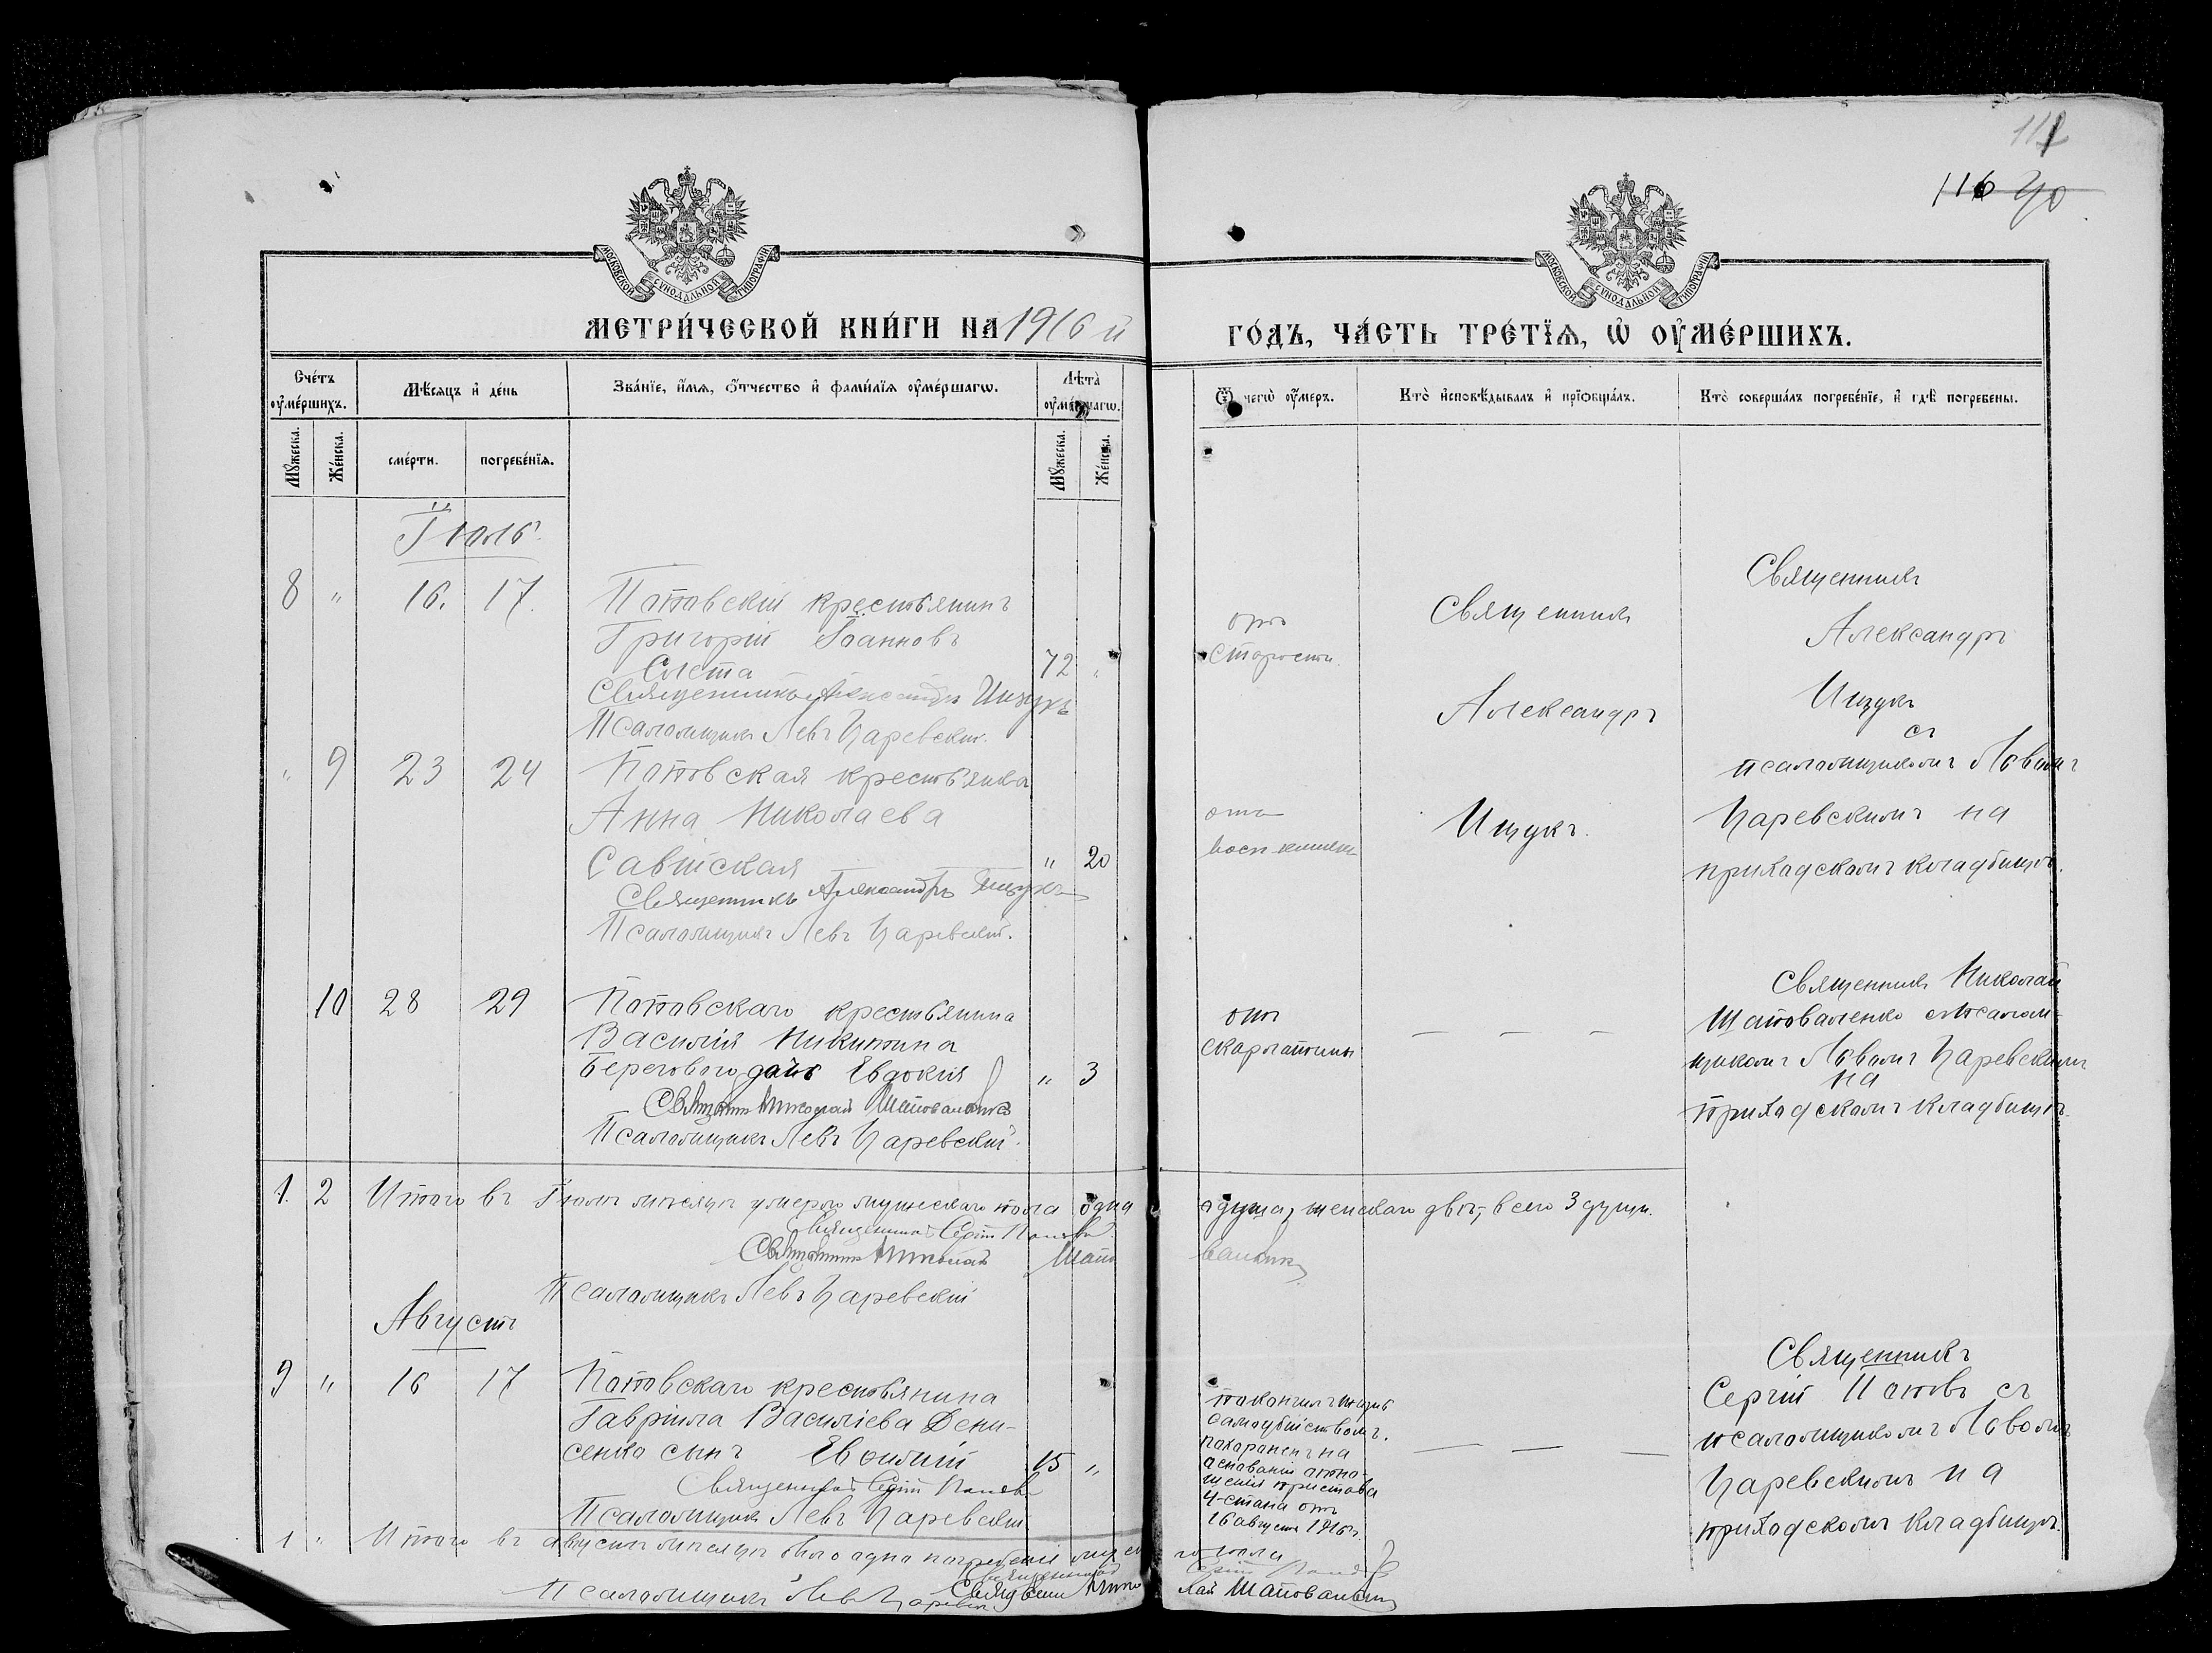 112
116 90
МОСКОВСКОЙ СУНОДАЛЬНОЙ ТИПОГРАФІИ
МОСКОВСКОЙ СУНОДАЛЬНОЙ ТИПОГРАФІИ
МЕТРИ́ЧЕСКОЙ КНИ́ГИ НА 1916 й
ГО́ДЪ, ЧА́СТЬ ТРЕ́ТЇѦ, Ѡ҆ ОУ҆МЕ́РШИХЪ.
Сче́тъ оу҆ме́ршихъ.
Мѣ́сѧцъ и҆ де́нь
Зва́нїе, и҆́мѧ, ѻ҆́тчество и҆ фами́лїѧ оу҆ме́ршагѡ.
Лѣта̀ оу҆ме́ршагѡ.
Ѿ чегѡ̀ оу҆́меръ.
Кто̀ и҆сповѣ́дывалъ и҆ прїобща́лъ.
Кто̀ соверша́лъ погребе́нїе, и҆ гдѣ̀ погребены.
Мꙋ́жеска.
Же́нска.
сме́рти.
погребе́нїѧ.
Мꙋ́жеска.
Же́нска.
Іюль.
8 " 16. 17.
Поповскій крестьянинъ
Григорій Іоанновъ
72 "
Священникъ Александръ Ищукъ
Псаломщикъ Левъ Царевскій.
отъ
старости.
Священникъ
Александръ
Ищукъ.
Священникъ
Александръ
Ищукъ
съ
псаломщикомъ Львомъ
Царевскимъ на
приходскомъ кладбищѣ.
" 9 23 24
Поповская крестьянка
Анна Николаева
Савитская " 20
Священникъ Александръ Ищукъ
Псаломщикъ Левъ Царевскій.
отъ
10 28 29
Поповскаго крестьянина
Василія Никитина
Берегового дочь Евдокія " 3
Священникъ Николай Шаповаленко
Псаломщикъ Левъ Царевскій.
отъ
скарлатины
— — —
Священникъ Николай
Шаповаленко съ псалом-
щикомъ Львомъ Царевскимъ
на
приходскомъ кладбищѣ.
1. 2 Итого въ Іюлѣ мѣсяцѣ умерло мужескаго пола одна душа, женскаго двѣ, всего 3 души.
Священникъ Сергій Поповъ
Священникъ Николай Шаповаленко
Псаломщикъ Левъ Царевскій
Августъ
9 " 16 17
Поповскаго крестьянина
Гавріила Василіева Дени-
сенка сынъ Евфимій 15 "
Священникъ Сергій Поповъ
Псаломщикъ Левъ Царевскій
покончилъ жизнь
самоубійствомъ.
Похороненъ на
основаніи отно-
шенія пристава
4-стана отъ
16 августа 1916 г.
— — —
Священникъ
Сергій Поповъ съ
псаломщикомъ Львомъ
Царевскимъ на
приходскомъ кладбищѣ.
1 " Итого въ августѣ мѣсяцѣ было одно погребеніе муж. пола
Священникъ Сергій Поповъ
Псаломщикъ Левъ Царевскій Священникъ Николай Шаповаленко